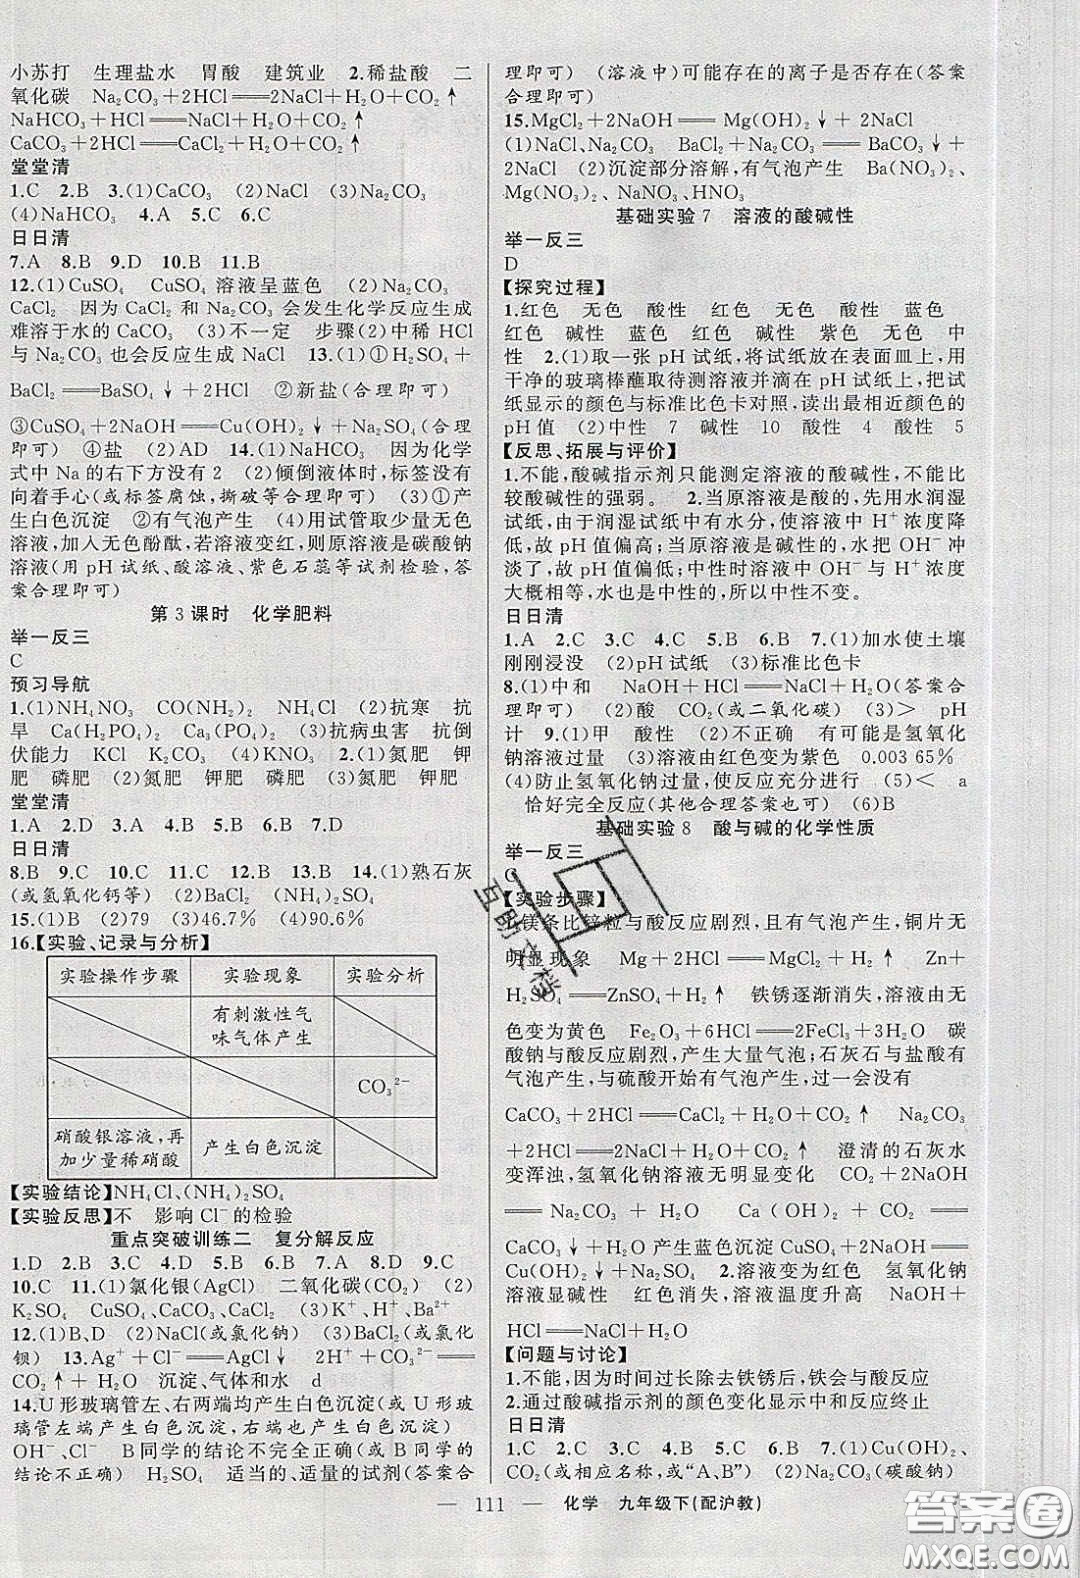 小苏打 生理盐水 胃酸 建筑业 2.稀盐酸 二
氧化碳 Na₂CO₃+2HCl══2NaCl+H₂O+CO₂↑
NaHCO₃+HCl══NaCl+H₂O+CO₂↑
CaCO₃+2HCl══CaCl₂+H₂O+CO₂↑
堂堂清
1.C 2.B 3.(1)CaCO₃ (2)NaCl (3)Na₂CO₃
(4)NaHCO₃ 4.A 5.C 6.C
日日清
7.A 8.B 9.D 10.B 11.B
12.(1)CuSO₄ CuSO₄溶液呈蓝色 (2)Na₂CO₃、
CaCl₂ 因为CaCl₂和Na₂CO₃会发生化学反应生成
难溶于水的CaCO₃ (3)不一定 步骤(2)中稀HCl
与Na₂CO₃也会反应生成NaCl 13.(1)①H₂SO₄+
BaCl₂══BaSO₄↓+2HCl ②新盐(合理即可)
③CuSO₄+2NaOH══Cu(OH)₂↓+Na₂SO₄(合理
即可) ④盐 (2)AD 14.(1)NaHCO₃ 因为化学
式中Na的右下方没有2 (2)倾倒液体时,标签没有
向着手心(或标签腐蚀,撕破等合理即可) (3)①产
生白色沉淀 ②有气泡产生 (4)用试管取少量无色
溶液,加入无色酚酞,若溶液变红,则原溶液是碳酸钠
溶液(用pH试纸、酸溶液、紫色石蕊等试剂检验,答
案合理即可)
第3课时 化学肥料
举一反三
C
预习导航
1.(1)NH₄NO₃ CO(NH₂)₂ NH₄Cl (2)抗寒 抗
旱 Ca(H₂PO₄)₂ Ca₃(PO₄)₂ (3)抗病虫害 抗倒
伏能力 KCl K₂CO₃ (4)KNO₃ 2.(1)氮肥 钾
肥 磷肥 (2)氮肥 钾肥 磷肥 (3)氮肥 钾肥
堂堂清
1.A 2.D 3.A 4.B 5.B 6.B 7.D
日日清
8.B 9.C 10.D 11.B 12.B 13.C 14.(1)熟石灰
(或氢氧化钙等) (2)BaCl₂ (NH₄)₂SO₄
15.(1)B (2)79 (3)46.7% (4)90.6%
16.【实验、记录与分析】
实验操作步骤 实验现象 实验分析
有刺激性气
味气体产生
CO₃²⁻
硝酸银溶液,再
加少量稀硝酸 产生白色沉淀
【实验结论】NH₄Cl、(NH₄)₂SO₄
【实验反思】不 影响Cl⁻的检验
重点突破训练二 复分解反应
1.D 2.B 3.C 4.D 5.D 6.B 7.B 8.D 9.C
10.C 11.(1)氯化银(AgCl) 二氧化碳(CO₂) (2)
K₂SO₄ CuSO₄、CaCO₃、CaCl₂ (3)K⁺、H⁺、Ba²⁺
12.(1)B、D (2)NaCl(或氯化钠) (3)BaCl₂(或氯化
钡) 13.Ag⁺+Cl⁻══AgCl↓ 2H⁺+CO₃²⁻══
CO₂↑+H₂O 沉淀、气体和水 d
14.U形玻璃管左、右两端均产生白色沉淀(或U形玻
璃管左端产生白色沉淀,右端也产生白色沉淀)
OH⁻、Cl⁻ B同学的结论不完全正确(或B同学的
结论不正确) H₂SO₄ 适当的、适量的试剂(答案合
理即可) (溶液中)可能存在的离子是否存在(答案
合理即可)
15.MgCl₂+2NaOH══Mg(OH)₂↓+2NaCl
(1)NaCl、Na₂CO₃ BaCl₂+Na₂CO₃══BaCO₃↓+
2NaCl (2)沉淀部分溶解,有气泡产生 Ba(NO₃)₂、
Mg(NO₃)₂、NaNO₃、HNO₃
基础实验7 溶液的酸碱性
举一反三
D
【探究过程】
1.红色 无色 酸性 红色 无色 酸性 蓝色
红色 碱性 蓝色 红色 碱性 紫色 无色 中
性 2.(1)取一张pH试纸,将试纸放在表面皿上,用
干净的玻璃棒蘸取待测溶液并滴在pH试纸上,把试
纸显示的颜色与标准比色卡对照,读出最相近颜色的
pH值 (2)中性 7 碱性 10 酸性 4 酸性 5
【反思、拓展与评价】
1.不能,酸碱指示剂只能测定溶液的酸碱性,不能比
较酸碱性的强弱。 2.当原溶液是酸的,先用水润湿
试纸,由于润湿试纸中有水分,使溶液中H⁺浓度降
低,故pH值偏高;当原溶液是碱性的,水把OH⁻冲
淡了,故pH值偏低;当溶液是中性时溶液中OH⁻与H⁺浓度
大概相等,水也是中性的,所以中性不变。
日日清
1.A 2.C 3.C 4.C 5.B 6.B 7.(1)加水使土壤
刚刚浸没 (2)pH试纸 (3)标准比色卡
8.(1)中和 NaOH+HCl══NaCl+H₂O(答案合
理即可) (2)酸 CO₂(或二氧化碳) (3)> pH
计 9.(1)甲 酸性 (2)不正确 有可能是氢氧化
钠溶液过量 (3)溶液由红色变为紫色 0.003 65%
(4)防止氢氧化钠过量,使反应充分进行 (5)< a
恰好完全反应(其他合理答案也可) (6)B
基础实验8 酸与碱的化学性质
举一反三
C
【实验步骤】
1.镁条比锌粒与酸反应剧烈,且有气泡产生,铜片无
明显现象 Mg+2HCl══MgCl₂+H₂↑ Zn+
H₂SO₄══ZnSO₄+H₂↑ 铁锈逐渐消失,溶液由无
色变为黄色 Fe₂O₃+6HCl══2FeCl₃+3H₂O 碳
酸钠与酸反应剧烈,产生大量气泡;石灰石与盐酸有
气泡产生,与硫酸开始有气泡产生,过一会没有
CaCO₃+2HCl══CaCl₂+H₂O+CO₂↑ Na₂CO₃
+2HCl══2NaCl+H₂O+CO₂↑ 澄清的石灰水
变浑浊,氢氧化钠溶液无明显变化 CO₂+2NaOH
══Na₂CO₃+H₂O Ca(OH)₂+CO₂══
CaCO₃↓+H₂O 产生蓝色沉淀 CuSO₄+2NaOH══
Cu(OH)₂↓+Na₂SO₄ 2.溶液变为红色 氢氧化钠
溶液显碱性 红色消失,溶液温度升高 NaOH+
HCl══NaCl+H₂O
【问题与讨论】
1.不能,因为时间过长除去铁锈后,铁会与酸反应
2.通过酸碱指示剂的颜色变化显示中和反应终止
日日清
1.C 2.C 3.C 4.A 5.B 6.D 7.(1)Cu(OH)₂、
CO₂(或相应名称,或“A、B”) (2)碳酸钠(或
— 111 — 化学 九年级下(配沪教)
互助文档
答案圈
MXQE.COM